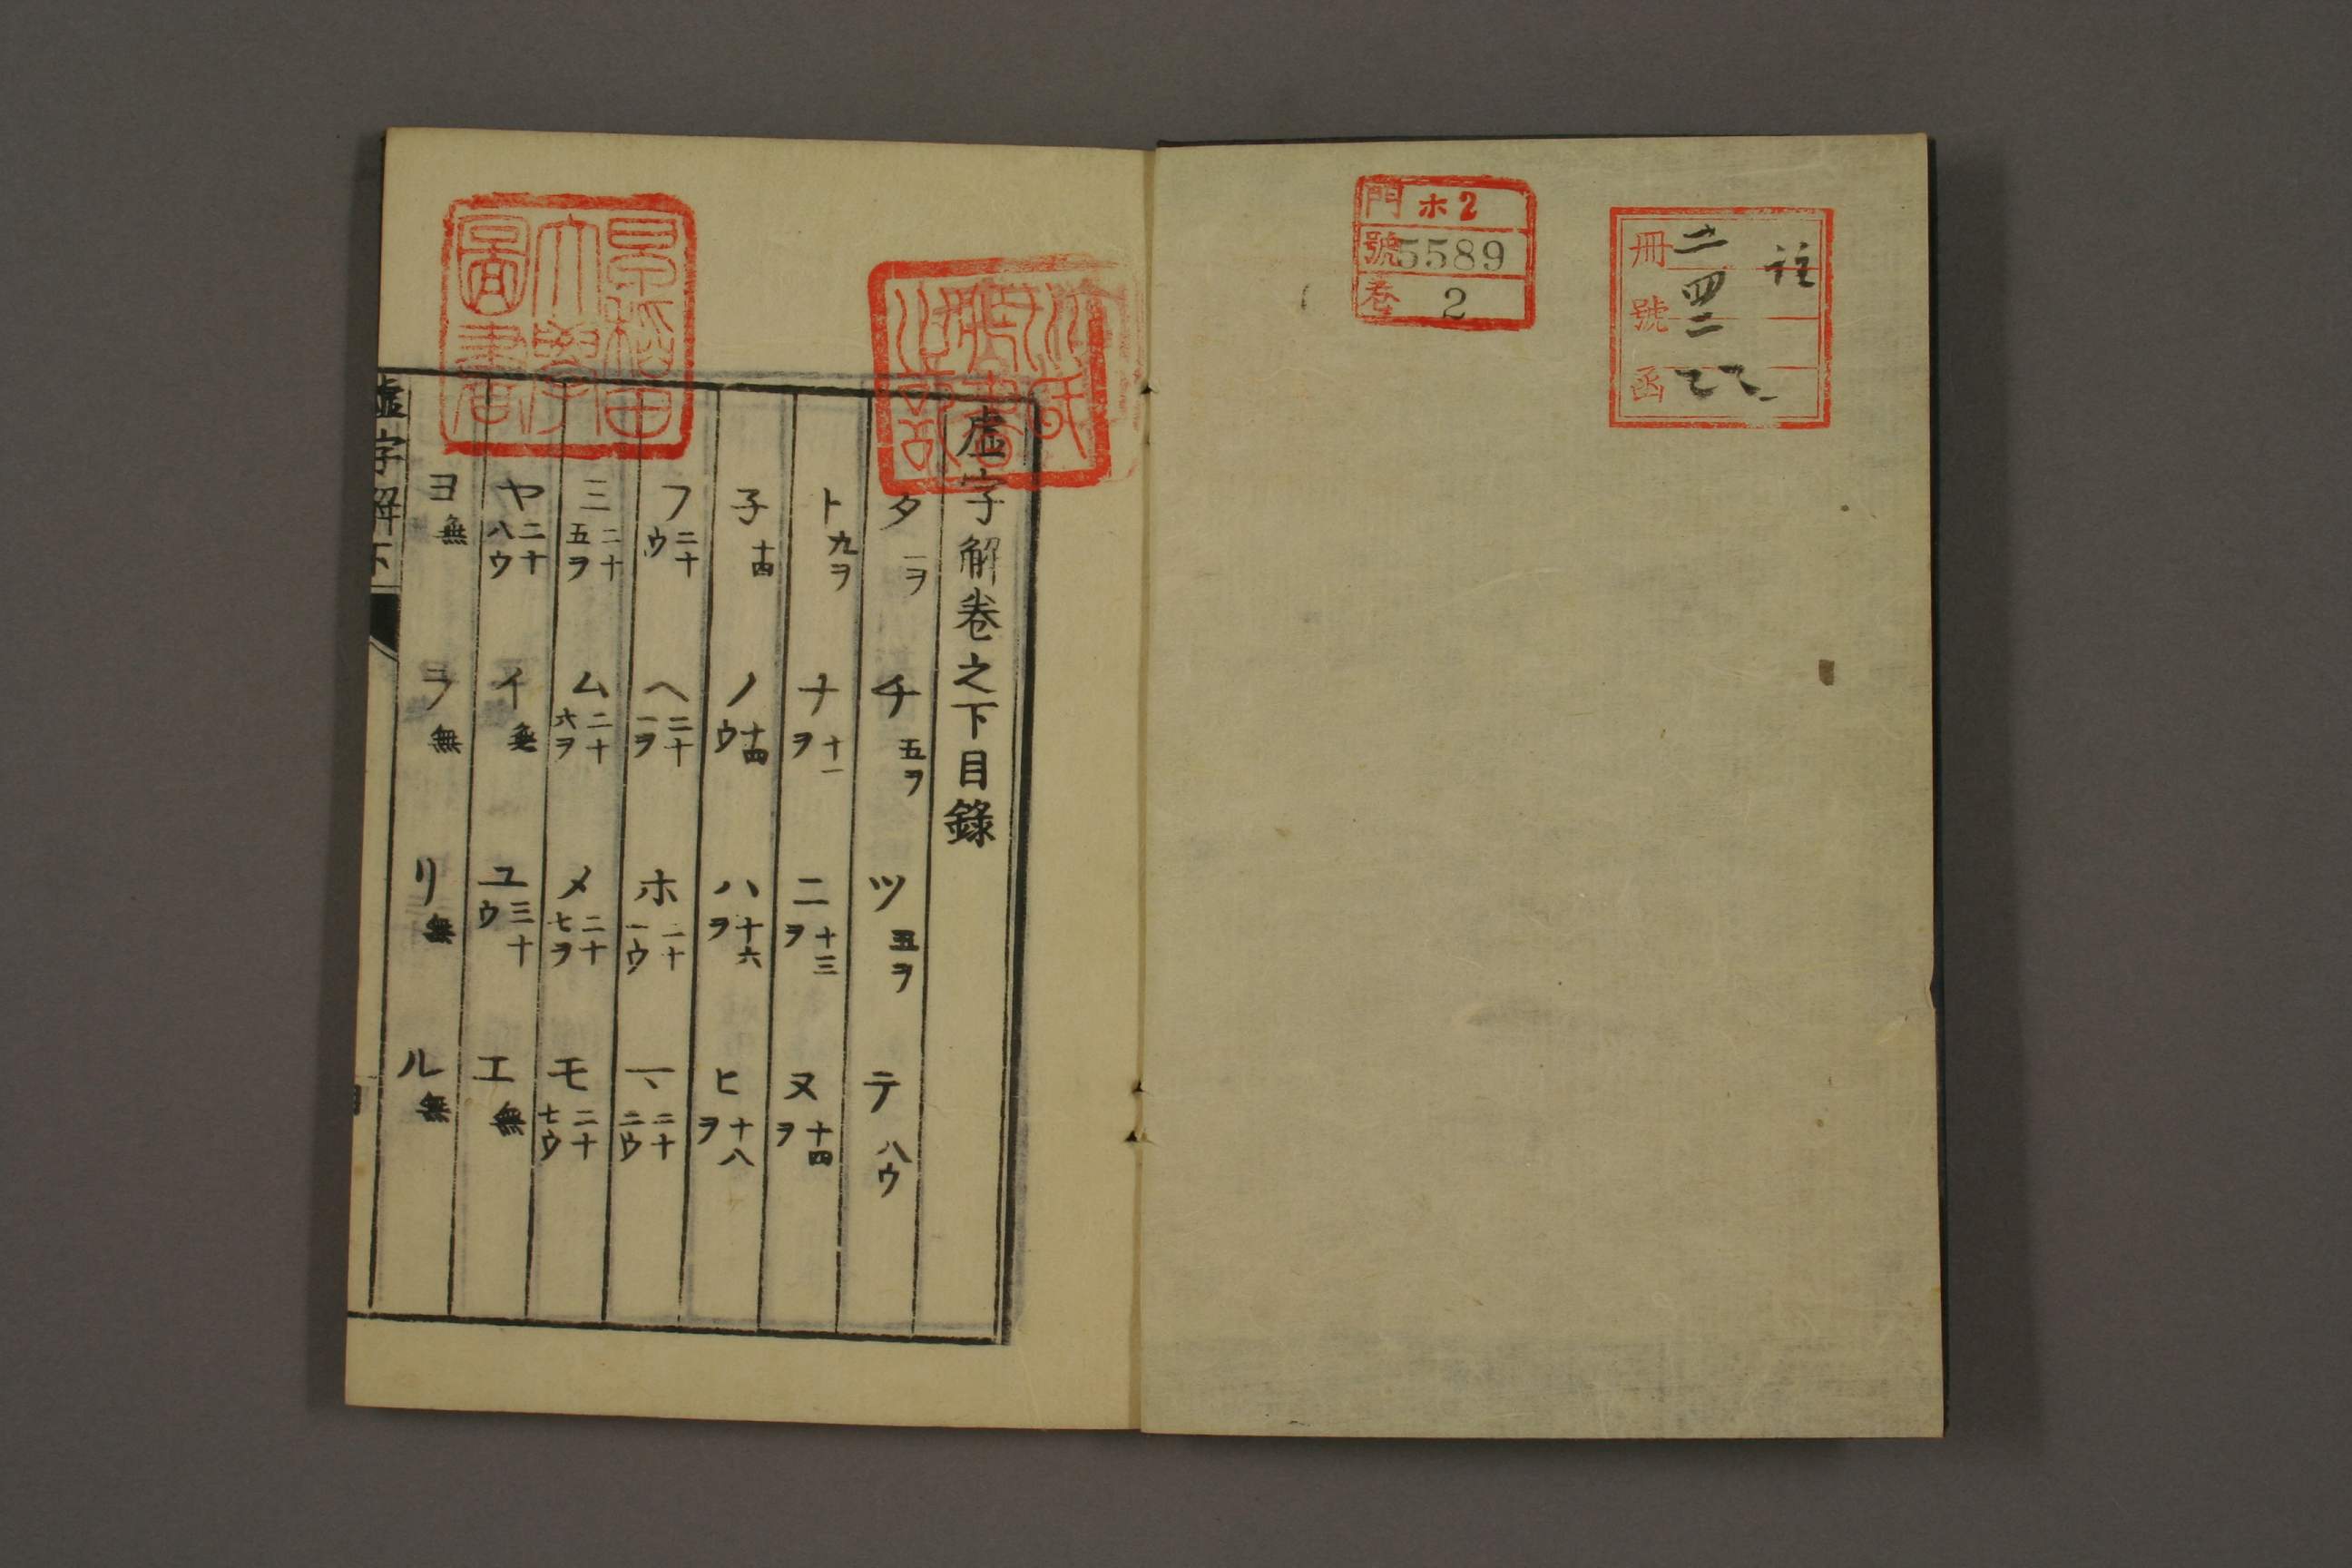 門 ホ2
號 5589
卷 2
註
冊 二
號 四二
函
早稲田
大學
圖書
虛字解卷之下目錄
タ 一ヲ チ 五ヲ ツ 五ヲ テ 八ウ
ト 九ヲ ナ 十一ヲ ニ 十三ヲ ヌ 十四ヲ
子 十四 ノ 十四ウ ハ 十六ヲ ヒ 十八ヲ
フ 二十ウ ヘ 二十一ヲ ホ 二十一ウ マ 二十二ウ
ミ 二十五ヲ ム 二十六ヲ メ 二十七ヲ モ 二十七ウ
ヤ 二十八ウ イ 無 ユ 三十ウ エ 無
ヨ 無 ラ 無 リ 無 ル 無
虛字解下